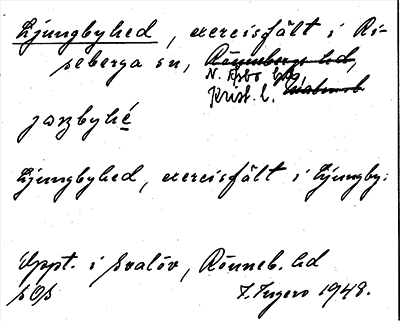 Ljungbyhed, exercisfält i Ri-
seberga sn, Rönnebergs hd,
N. Åsbo hd,
Krist. l.
Ljungbyhed, exercisfält i Ljungby:
Uppt. i Svalöv, Rönneb. hd
SOS J. Ingers 1948.